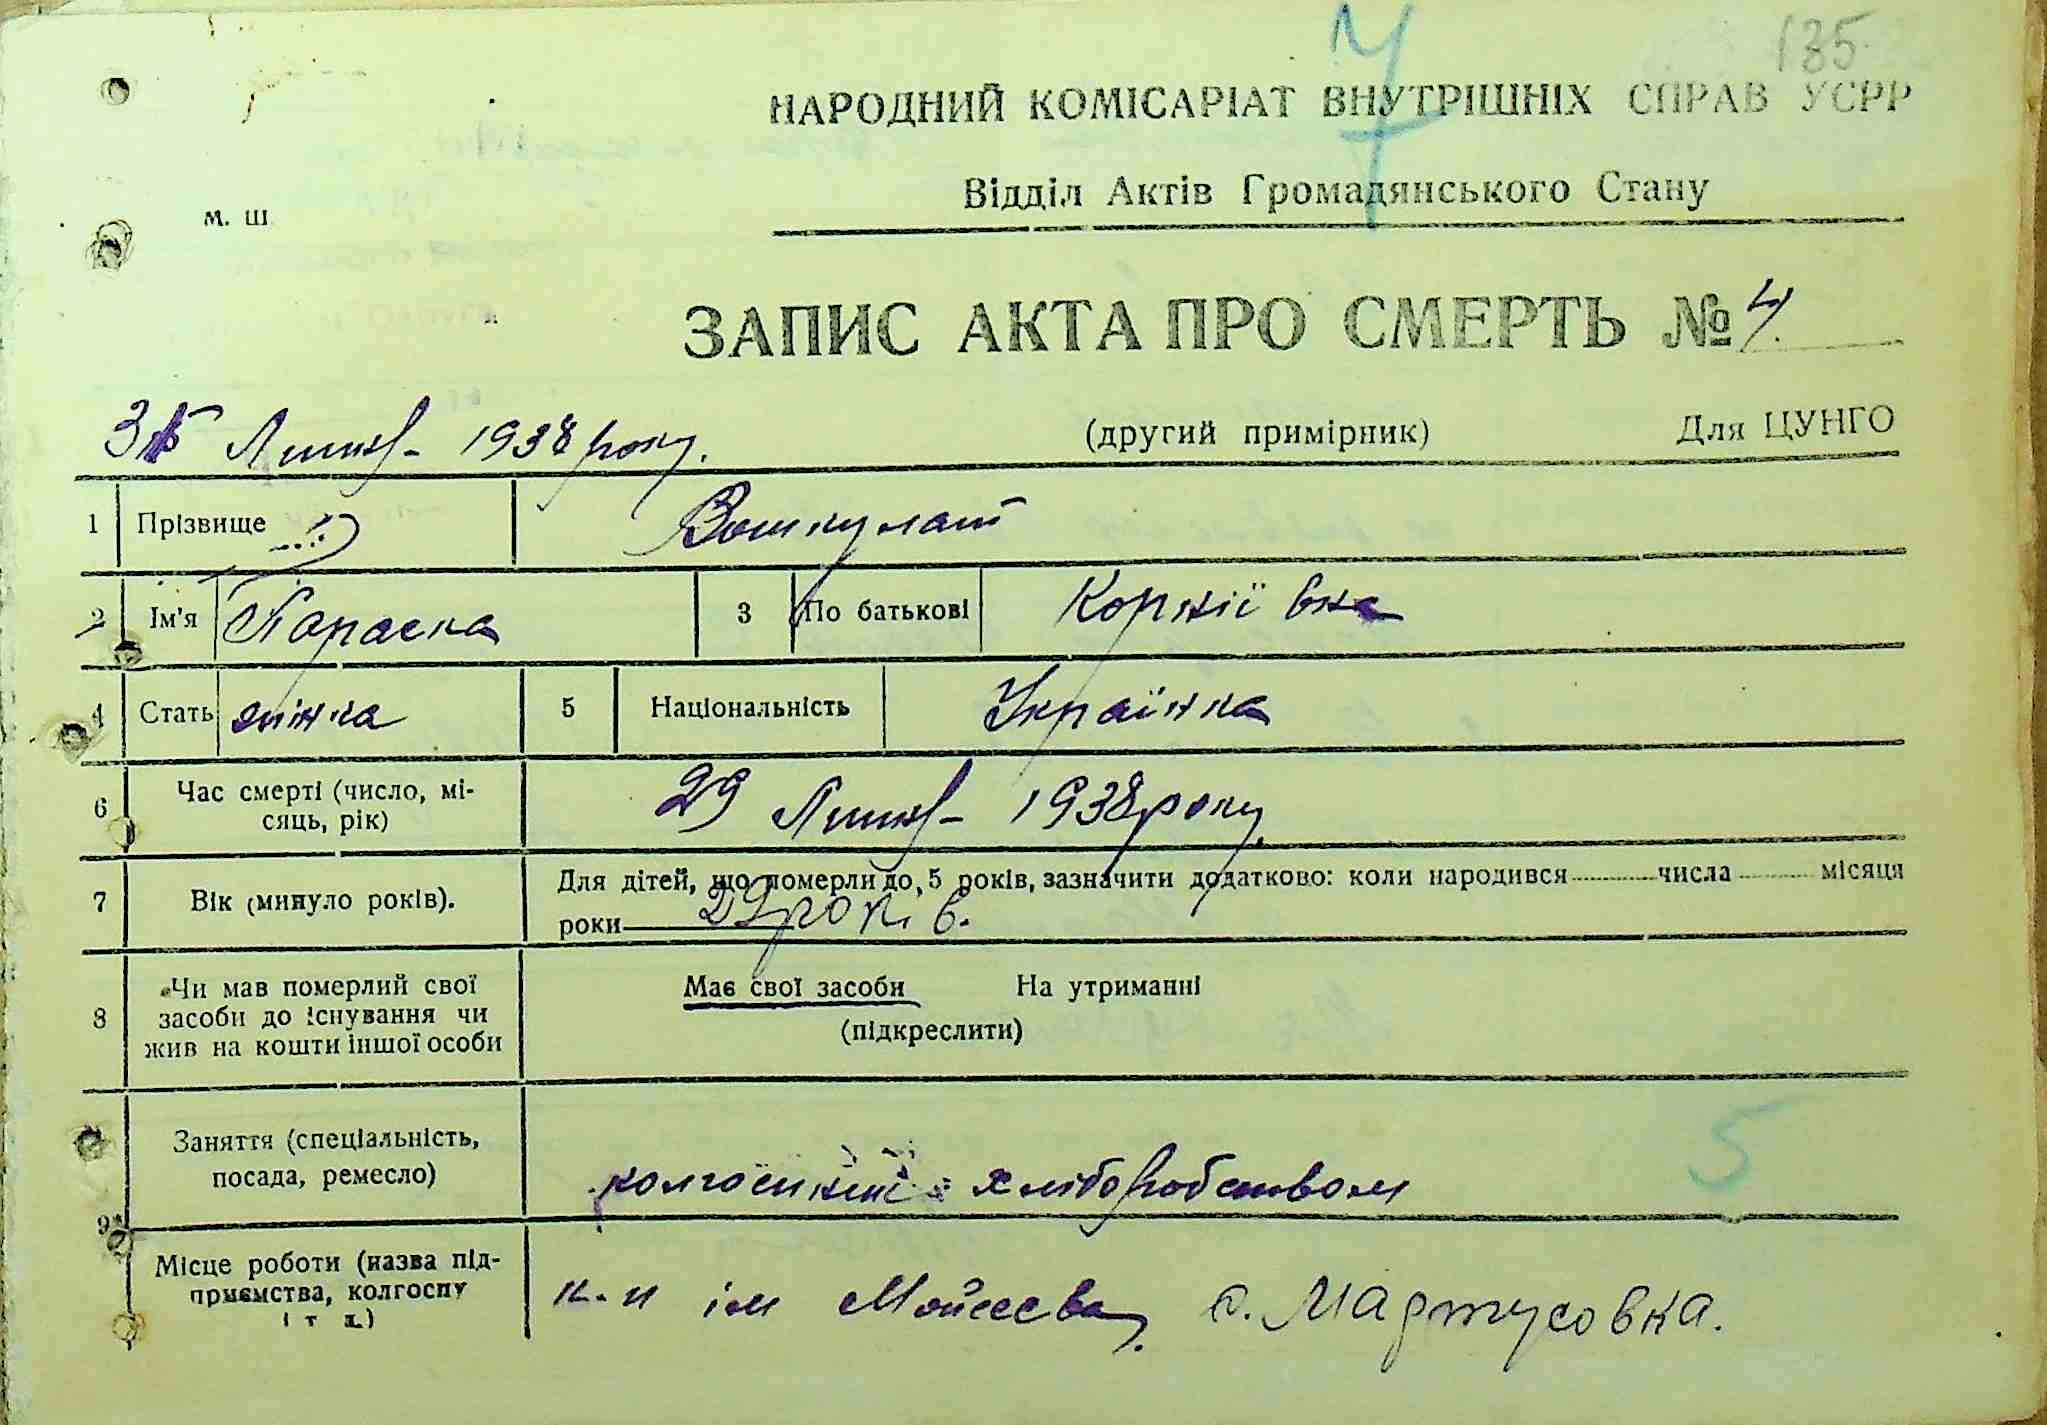 135
7
НАРОДНИЙ КОМІСАРІАТ ВНУТРІШНІХ СПРАВ УСРР
Відділ Актів Громадянського Стану
м. ш
ЗАПИС АКТА ПРО СМЕРТЬ № 4.
Липня 1938 року.
(другий примірник) Для ЦУНГО
1 Прізвище Вошкулат
2 Ім'я Параска 3 По батькові Корніївна
4 Стать жінка 5 Національність Українка
6 Час смерті (число, мі-
сяць, рік) 29 Липня 1938 року.
7 Вік (минуло років). Для дітей, що померли до 5 років, зазначити додатково: коли народився числа місяця
роки 29 років.
8 Чи мав померлий свої
засоби до існування чи
жив на кошти іншої особи
Має свої засоби На утриманні
(підкреслити)
Заняття (спеціальність,
посада, ремесло) хліборобством
5
9
Місце роботи (назва під-
приємства, колгоспу
і т д.)
к-п ім Мойсеєва, с. Мартусовка.